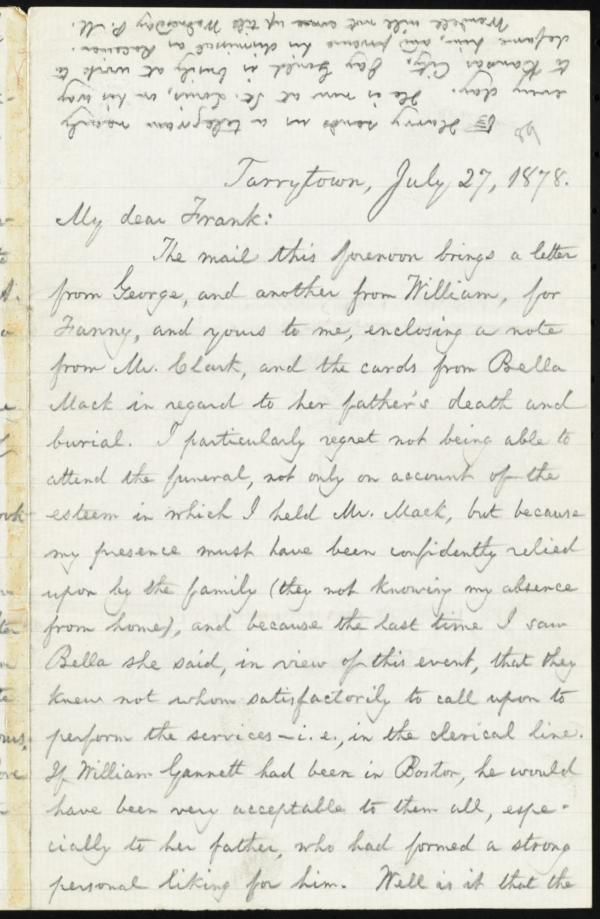 ☞ Harry sends us a telegram nearly
every day. He is now at St. Louis, on his way
to Kansas City. Jay Gould is busily at work to
defame him, and procure his dismissal as Receiver.
Wendell will not come up till Wednesday P. M.
Tarrytown, July 27, 1878.
My dear Frank:
The mail this forenoon brings a letter
from George, and another from William, for
Fanny, and yours to me, enclosing a note
from Mr. Clark, and the cards from Bella
Mack in regard to her father's death and
burial. I particularly regret not being able to
attend the funeral, not only on account of the
esteem in which I held Mr. Mack, but because
my presence must have been confidently relied
upon by the family (they not knowing my absence
from home), and because the last time I saw
Bella she said, in view of this event, that they
knew not whom satisfactorily to call upon to
perform the services—i. e., in the clerical line.
If William Gannett had been in Boston, he would
have been very acceptable to them all, espe-
cially to her father, who had formed a strong
personal liking for him. Well is it that the